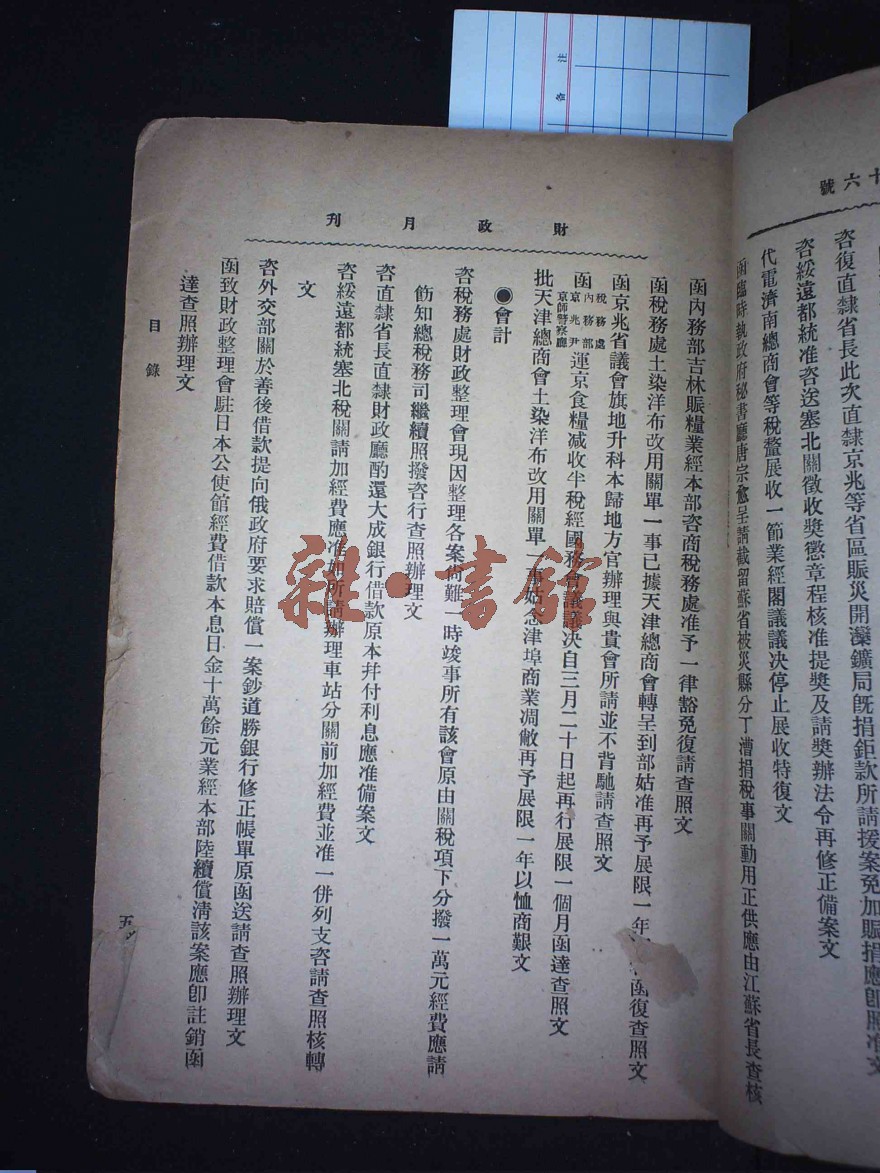 十六號
咨復直隸省長此次直隸京兆等省區賑災開灤鑛局旣捐鉅款所請援案免加賑捐應卽照准文
咨綏遠都統准咨送塞北關徵收獎懲章程核准提獎及請獎辦法令再修正備案文
代電濟南總商會等稅釐展收一節業經閣議議決停止展收特復文
函臨時執政府秘書廳唐宗愈呈請截留蘇省被災縣分丁漕捐稅事關動用正供應由江蘇省長查核
財政月刊
函內務部吉林賑糧業經本部咨商稅務處准予一律豁免復請查照文
函稅務處土染洋布改用關單一事已據天津總商會轉呈到部姑准再予展限一年 函復查照文
函京兆省議會旗地升科本歸地方官辦理與貴會所請並不背馳請查照文
函稅務處內務部京兆尹京師警察廳運京食糧減收半稅經國務會議議決自三月二十日起再行展限一個月函達查照文
批天津總商會土染洋布改用關單一事姑念津埠商業凋敝再予展限一年以恤商艱文
◉會計
咨稅務處財政整理會現因整理各案尙難一時竣事所有該會原由關稅項下分撥一萬元經費應請
飭知總稅務司繼續照撥咨行查照辦理文
咨直隸省長直隸財政廳酌還大成銀行借款原本幷付利息應准備案文
咨綏遠都統塞北稅關請加經費應准如所請辦理車站分關前加經費並准一併列支咨請查照核轉
文
咨外交部關於善後借款提向俄政府要求賠償一案鈔道勝銀行修正帳單原函送請查照辦理文
函致財政整理會駐日本公使館經費借款本息日金十萬餘元業經本部陸續償淸該案應卽註銷函
達查照辦理文
目錄
五
雜·書館
注